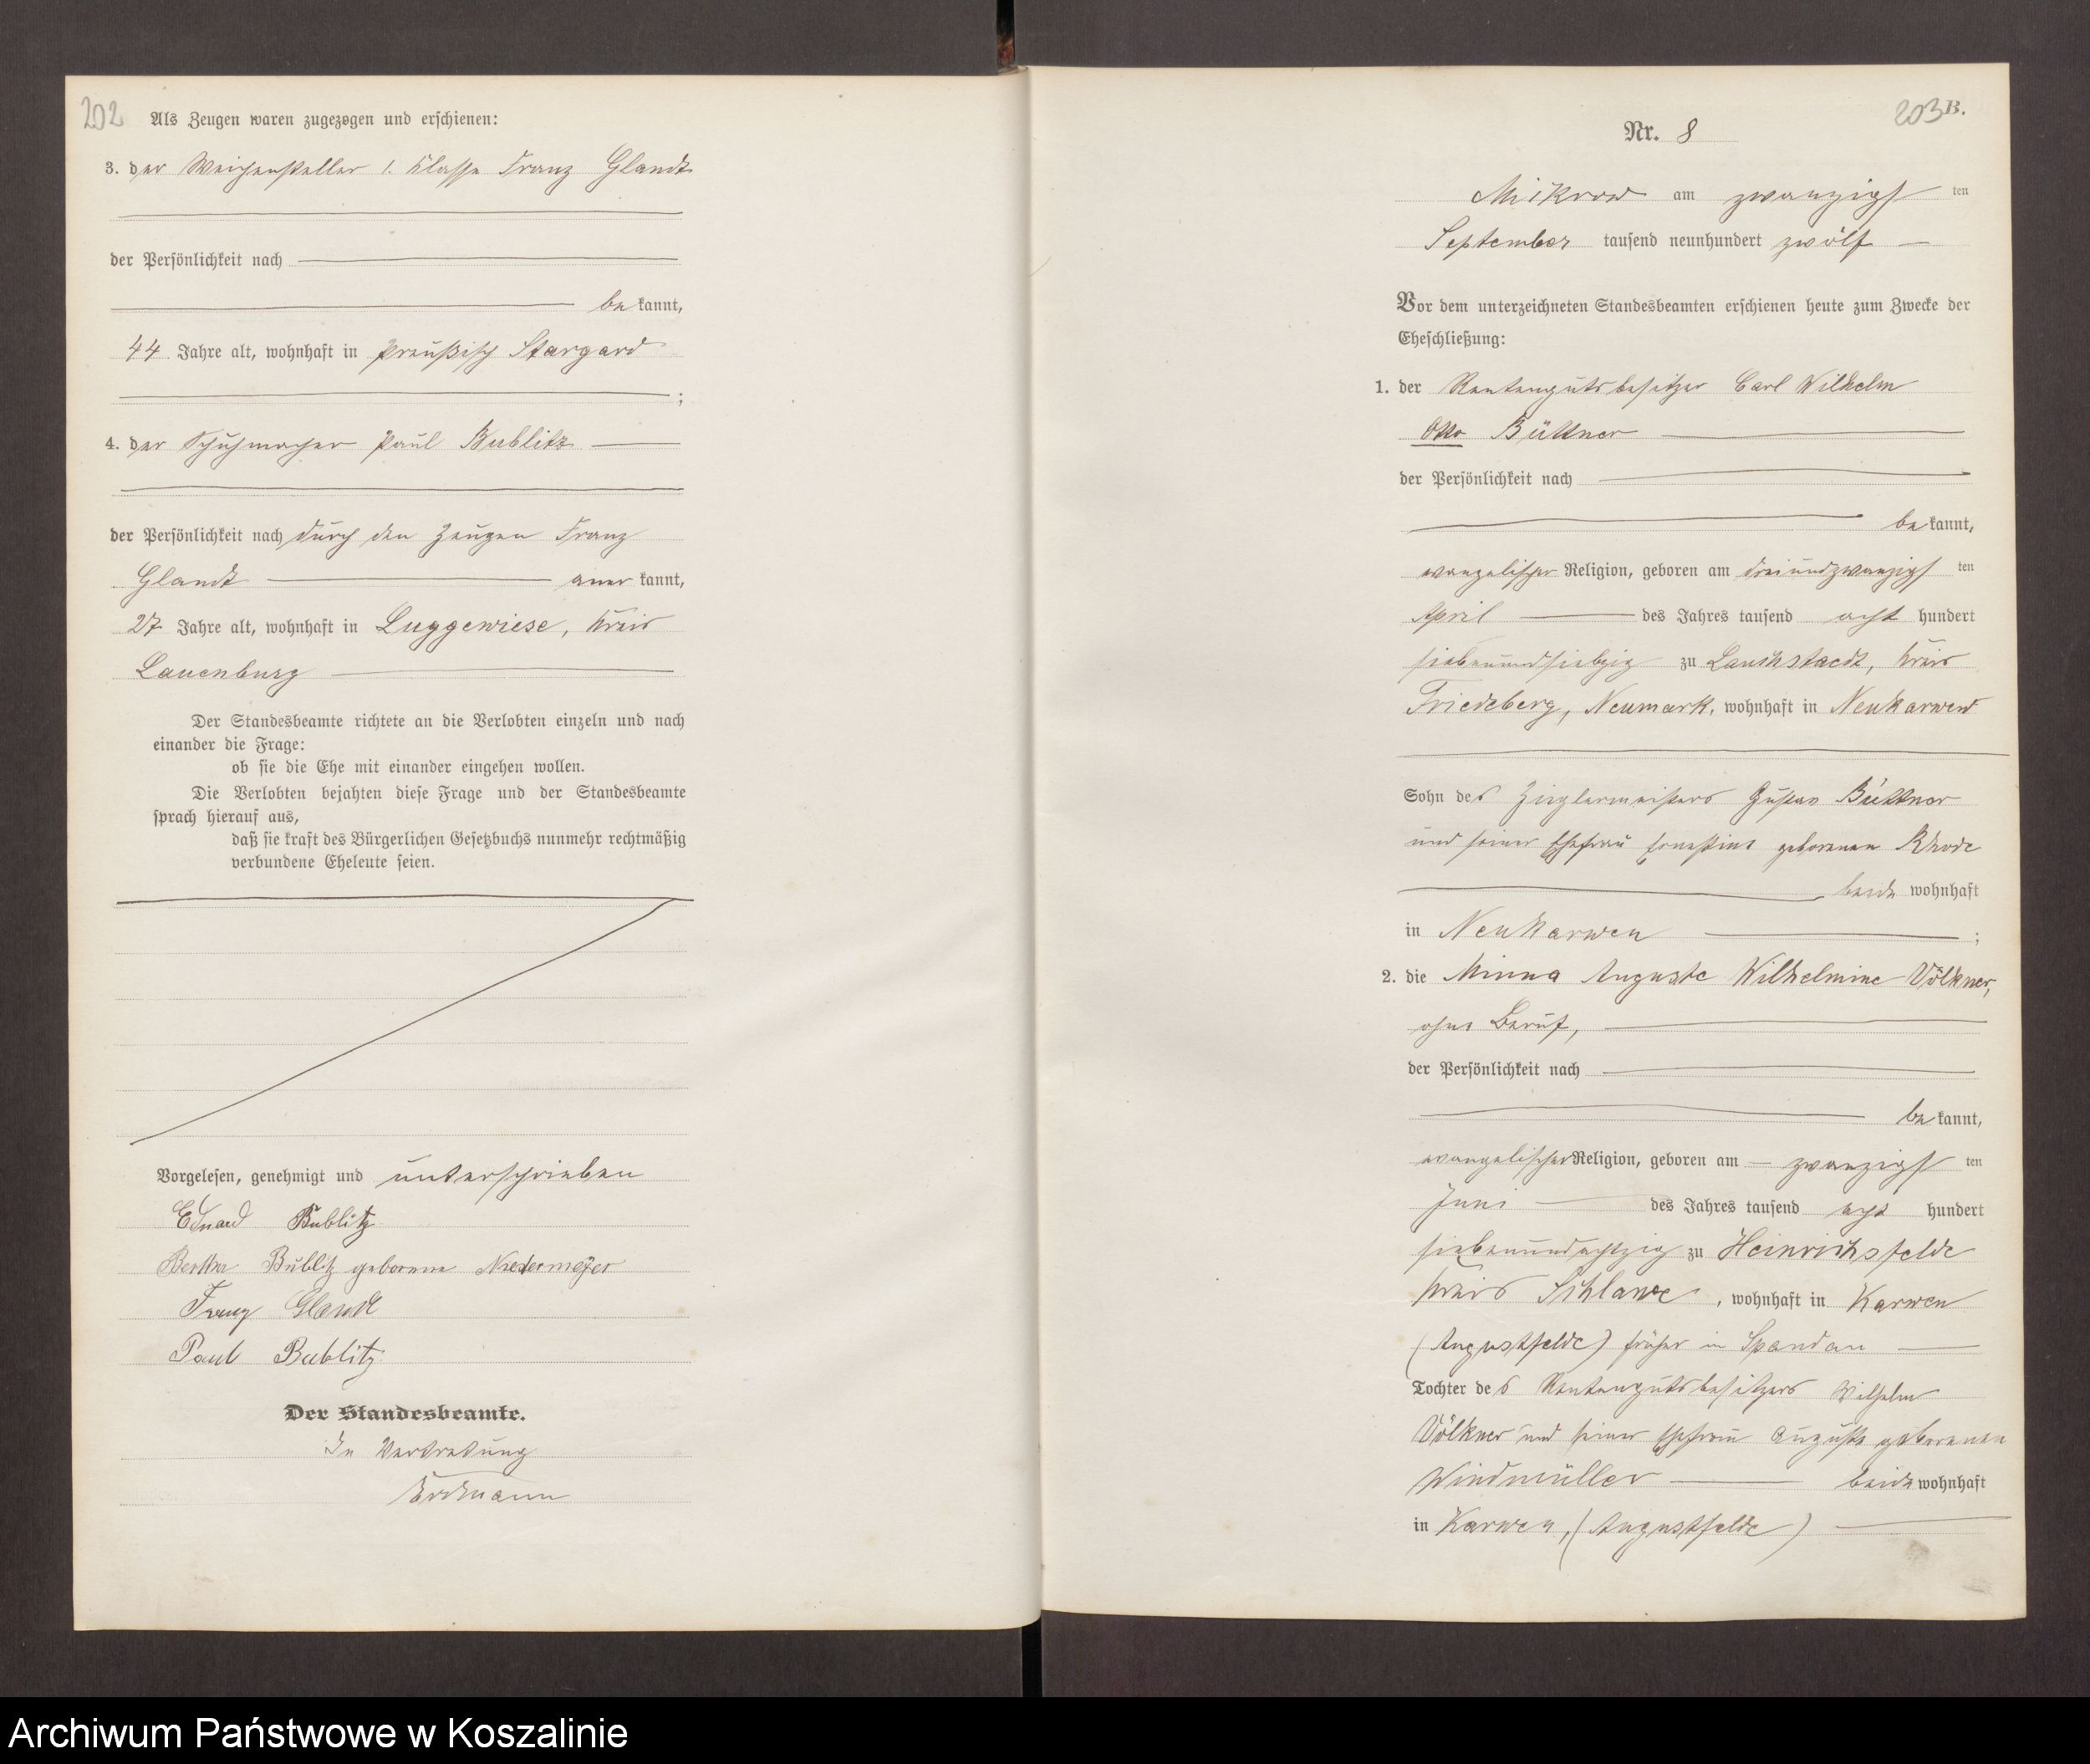 202
Als Zeugen waren zugezogen und erschienen:
3. der Weichensteller 1. Klasse Franz Glandt
der Persönlichkeit nach
be kannt,
44 Jahre alt, wohnhaft in Preußisch Stargard
;
4. der Schuhmacher Paul Bublitz
der Persönlichkeit nach durch den Zeugen Franz
Glandt aner kannt,
27 Jahre alt, wohnhaft in Luggewiese, Kreis
Lauenburg
Der Standesbeamte richtete an die Verlobten einzeln und nach
einander die Frage:
ob sie die Ehe mit einander eingehen wollen.
Die Verlobten bejahten diese Frage und der Standesbeamte
sprach hierauf aus,
daß sie kraft des Bürgerlichen Gesetzbuchs nunmehr rechtmäßig
verbundene Eheleute seien.
Vorgelesen, genehmigt und unterschrieben
Eduard Bublitz
Bertha Bublitz geborene Niedermeyer
Franz Glandt
Paul Bublitz
Der Standesbeamte.
In Vertretung
Erdmann
203 B.
Nr. 8
Mikrow am zwanzigs ten
September tausend neunhundert zwölf
Vor dem unterzeichneten Standesbeamten erschienen heute zum Zwecke der
Eheschließung:
1. der Rentengutsbesitzer Carl Wilhelm
Otto Büttner
der Persönlichkeit nach
be kannt,
evangelischer Religion, geboren am dreiundzwanzigs ten
April des Jahres tausend acht hundert
siebenundsiebzig zu Lauchstaedt, Kreis
Friedeberg, Neumark, wohnhaft in Neukarwen
Sohn des Zieglermeisters Gustav Büttner
und seiner Ehefrau Ernestine geborenen Rhode
beide wohnhaft
in Neukarwen ;
2. die Minna Auguste Wilhelmine Völkner,
ohne Beruf,
der Persönlichkeit nach
be kannt,
evangelischer Religion, geboren am zwanzigs ten
Juni des Jahres tausend acht hundert
siebenundachtzig zu Heinrichsfelde
Kreis Schlawe, wohnhaft in Karwen
(Augustfelde) früher in Spandau
Tochter des Rentengutsbesitzers Wilhelm
Völkner und seiner Ehefrau Auguste geborenen
Windmüller beide wohnhaft
in Karwen, (Augustfelde)
Archiwum Państwowe w Koszalinie